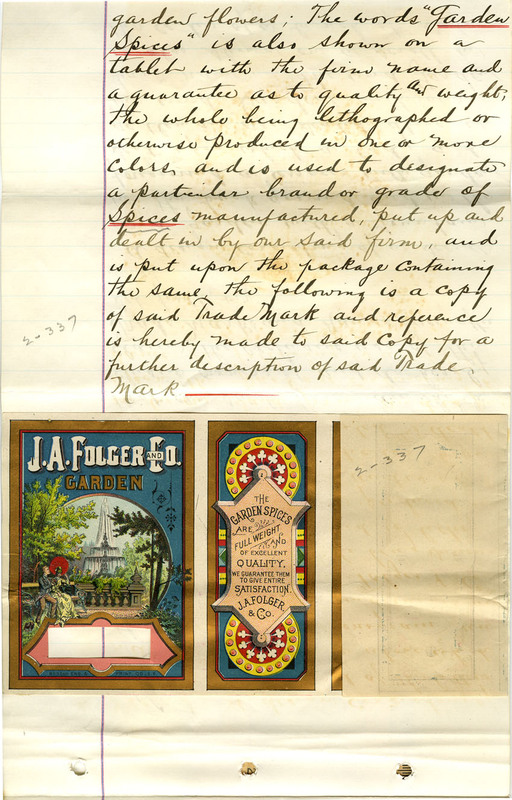 garden flowers; The words "Garden
Spices" is also shown on a
tablet with the firm name and
a guarantee as to quality and weight,
the whole being lithographed or
otherwise produced in one or more
colors, and is used to designate
a particular brand or grade of
Spices manufactured, put up and
dealt in by our said firm, and
is put upon the package containing
the same, the following is a copy
of said Trade Mark and reference
is hereby made to said copy for a
further description of said Trade
Mark
2-337
J.A. FOLGER AND CO.
GARDEN
THE
GARDEN SPICES
ARE
FULL WEIGHT
AND
OF EXCELLENT
QUALITY.
WE GUARANTEE THEM
TO GIVE ENTIRE
SATISFACTION.
J.A. FOLGER
& CO.
2-337